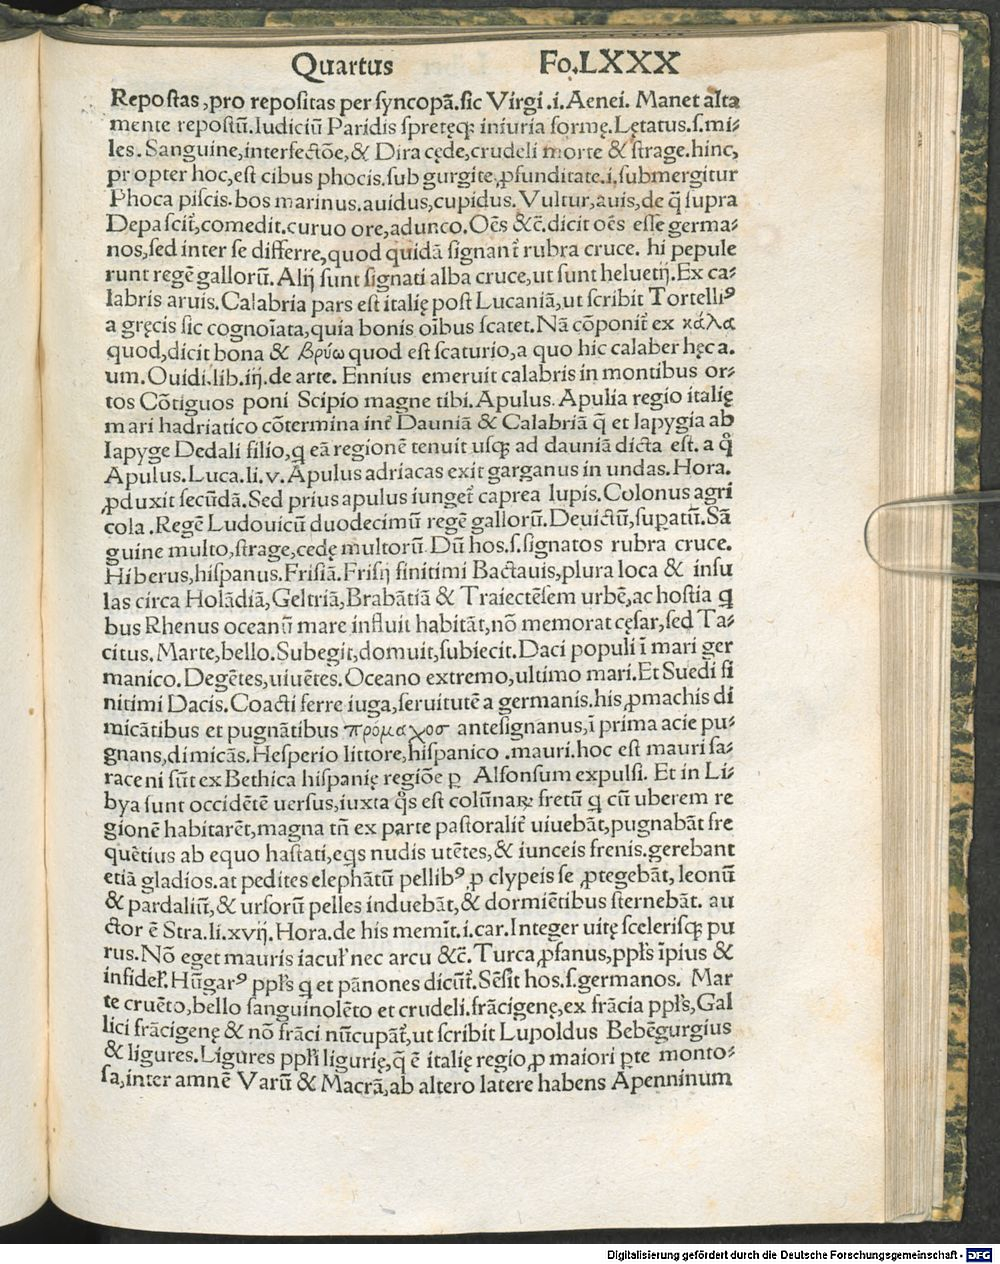 Quartus Fo.LXXX
Repostas,pro repositas per syncopā.sic Virgi.i.Aenei. Manet alta
mente repostū.Iudiciū Paridis spretęq; iniuria formę.Lętatus.s.mi⸗
les. Sanguine,interfectōe,& Dira cęde,crudeli morte & strage.hinc,
propter hoc,est cibus phocis.sub gurgite,ꝓfunditate.i.submergitur
Phoca piscis.bos marinus.auidus,cupidus.Vultur,auis,de q̄ supra
Depascit̄,comedit.curuo ore,adunco.Oēs &c̄.dicit oēs esse germa⸗
nos,sed inter se differre,quod quidā signant̄ rubra cruce. hi pepule
runt regē gallorū.Alij sunt signati alba cruce,ut sunt heluetij.Ex ca⸗
labris aruis.Calabria pars est italię post Lucaniā,ut scribit Tortelliꝰ
a gręcis sic cognoīata,quia bonis oībus scatet.Nā cōponit̄ ex κάλα
quod,dicit bona & βρύω quod est scaturio,a quo hic calaber hęc a.
um.Ouidi.lib.iij.de arte. Ennius emeruit calabris in montibus or⸗
tos Cōtiguos poni Scipio magne tibi.Apulus.Apulia regio italię
mari hadriatico cōtermina int̄ Dauniā & Calabriā q̄ et Iapygia ab
Iapyge Dedali filio,q eā regionē tenuit usq; ad dauniā dicta est. a q̊
Apulus.Luca.li.v.Apulus adriacas exit garganus in undas.Hora.
ꝓduxit secūdā.Sed prius apulus iunget̄ caprea lupis.Colonus agri
cola.Regē Ludouicū duodecimū regē gallorū.Deuictū,suꝑatū.Sā
guine multo,strage,cedę multorū.Dū hos.s.signatos rubra cruce.
Hiberus,hispanus.Frisiā.Frisij finitimi Bactauis,plura loca & insu
las circa Holādiā,Geltriā,Brabātiā & Traiectēsem urbē,ac hostia q
bus Rhenus oceanū mare influit habitāt,nō memorat cęsar,sed Ta⸗
citus.Marte,bello.Subegit,domuit,subiecit.Daci populi ī mari ger
manico.Degētes,uiuētes.Oceano extremo,ultimo mari.Et Suedi fi
nitimi Dacis.Coacti ferre iuga,seruitutē a germanis.his,ꝓmachis di
micātibus et pugnātibus πρόμαχοσ antesignanus,ī prima acie pu⸗
gnans,dimicās.Hesperio littore,hispanico.mauri.hoc est mauri sa⸗
raceni sūt ex Bethica hispanię regiōe ꝑ Alfonsum expulsi. Et in Li⸗
bya sunt occidētē uersus,iuxta q̊s est colūnaꝝ fretū q cū uberem re
gionē habitarēt,magna tn̄ ex parte pastoralit̄ uiuebāt,pugnabāt fre
quētius ab equo hastati,eqs nudis utētes,& iunceis frenis.gerebant
etiā gladios.at pedites elephātū pellibꝰ,ꝓ clypeis se ꝓtegebāt,leonū
& pardaliū,& ursorū pelles induebāt,& dormiētibus sternebāt. au
ctor ē Stra.li.xvij.Hora.de his memīt.i.car.Integer uitę scelerisq; pu
rus.Nō eget mauris iacul̄ nec arcu &c̄.Turca,ꝓfanus,ppl̄s īpius &
infidel̄.Hūgarꝰ ppl̄s q et pānones dicūt̄.Sēsit hos.s.germanos. Mar
te cruēto,bello sanguinolēto et crudeli.frācigenę,ex frācia ppl̄s,Gal
lici frācigenę & nō frāci nūcupāt̄,ut scribit Lupoldus Bebēgurgius
& ligures.Ligures ppl̄i ligurię,q̄ ē italię regio,ꝓ maiori ꝑte monto⸗
sa,inter amnē Varū & Macrā,ab altero latere habens Apenninum
Digitalisierung gefördert durch die Deutsche Forschungsgemeinschaft - DFG